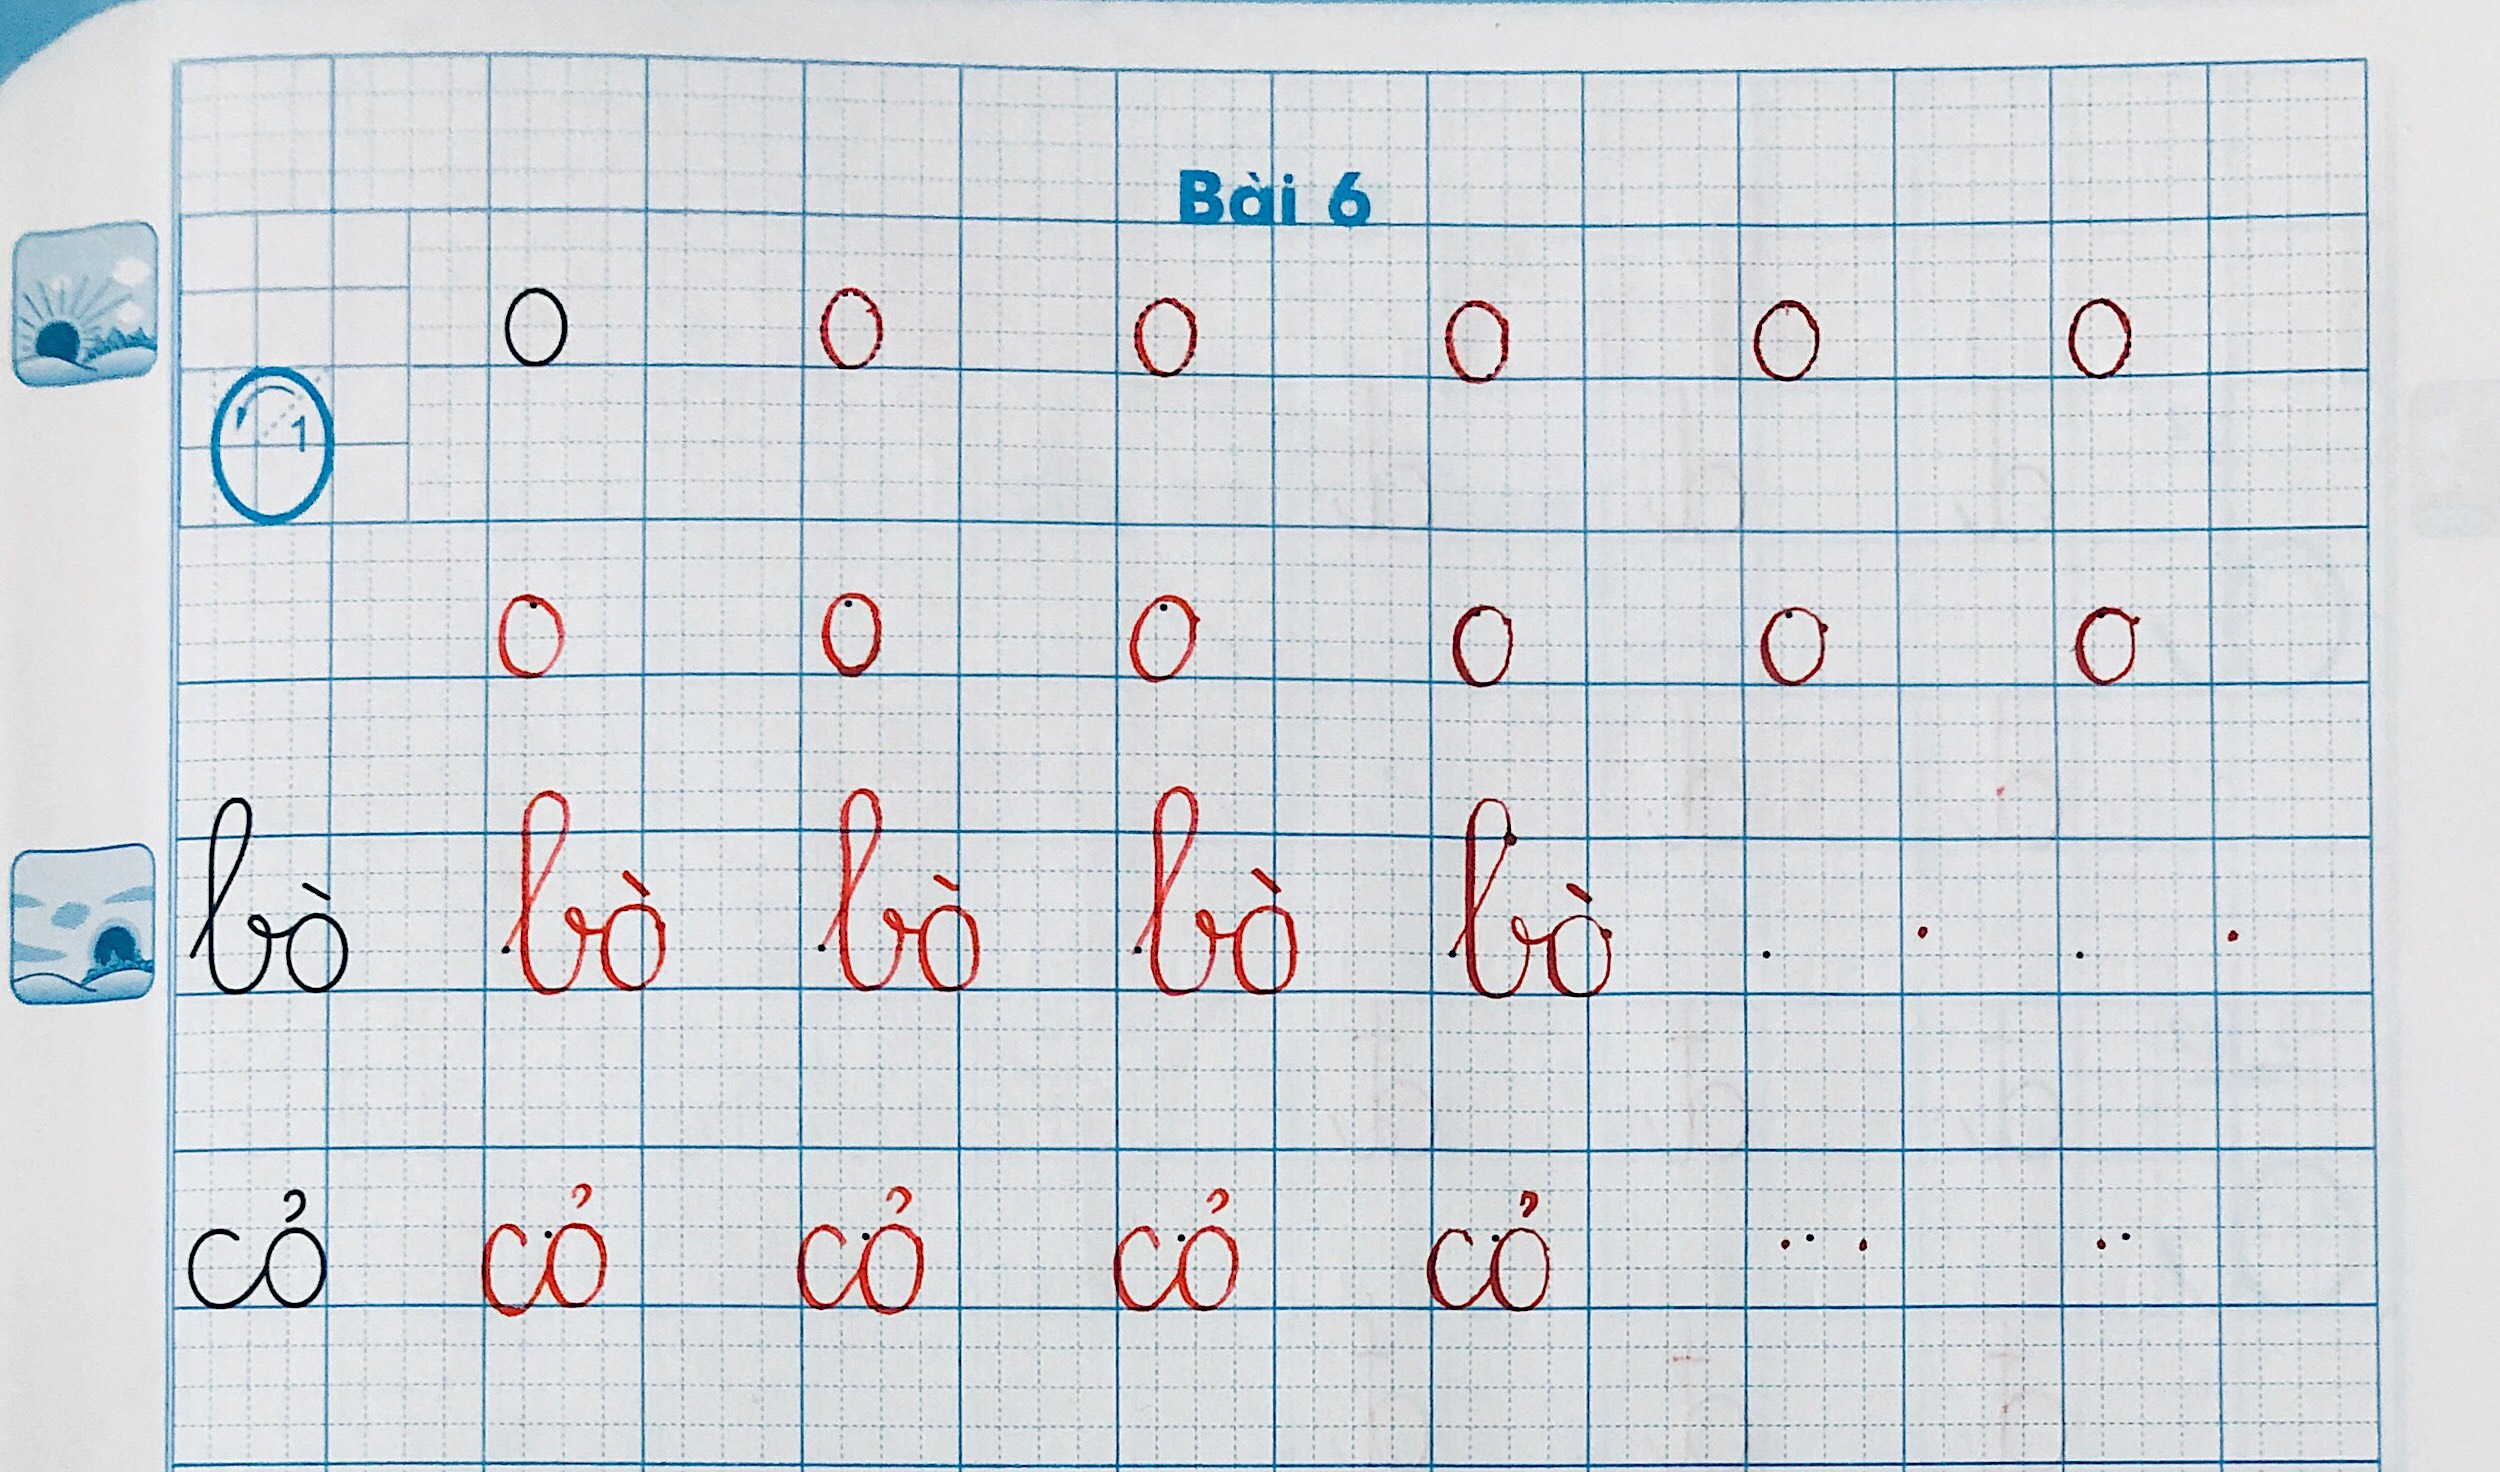 Bài 6
o o o o o o
1
o o o o o o
bò bò bò bò bò
cỏ cỏ cỏ cỏ cỏ